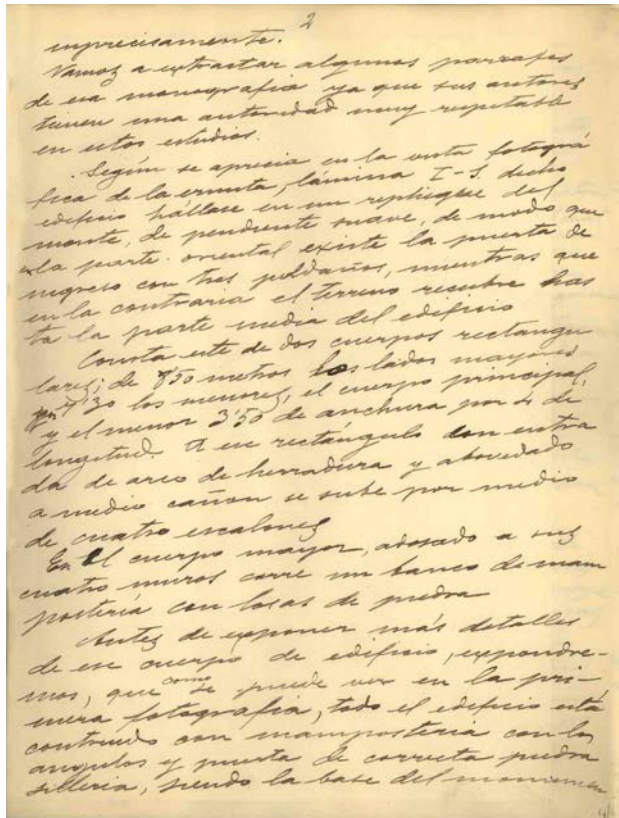 2
imprecisamente.
Vamos a extractar algunos parrafos
de esa monografia ya que sus autores
tienen una autoridad muy respetable
en estos estudios.
Según se aprecia en la vista fotográ
fica de la ermita, lámina I-S. dicho
edificio hállase en un repliegue del
monte, de pendiente suave, de modo que
a la parte oriental existe la puerta de
ingreso con tres peldaños, mientras que
en la contraria el terreno recubre has
ta la parte media del edificio
Consta este de dos cuerpos rectangu
lares; de 8'50 metros los lados mayores
y 4'30 los menores, el cuerpo principal,
y el menor 3'50 de anchura por 4 de
longitud. A ese rectángulo con entra
da de arco de herradura y abovedado
a medio cañon se sube por medio
de cuatro escalones
En el cuerpo mayor, adosado a sus
cuatro muros corre un banco de mam
postería con losas de piedra
Antes de exponer más detalles
de ese cuerpo de edificio, expondre-
mos, que como se puede ver en la pri-
mera fotografia, todo el edificio está
construido con mamposteria con los
angulos y puerta de correcta piedra
silleria, siendo la base del monumen